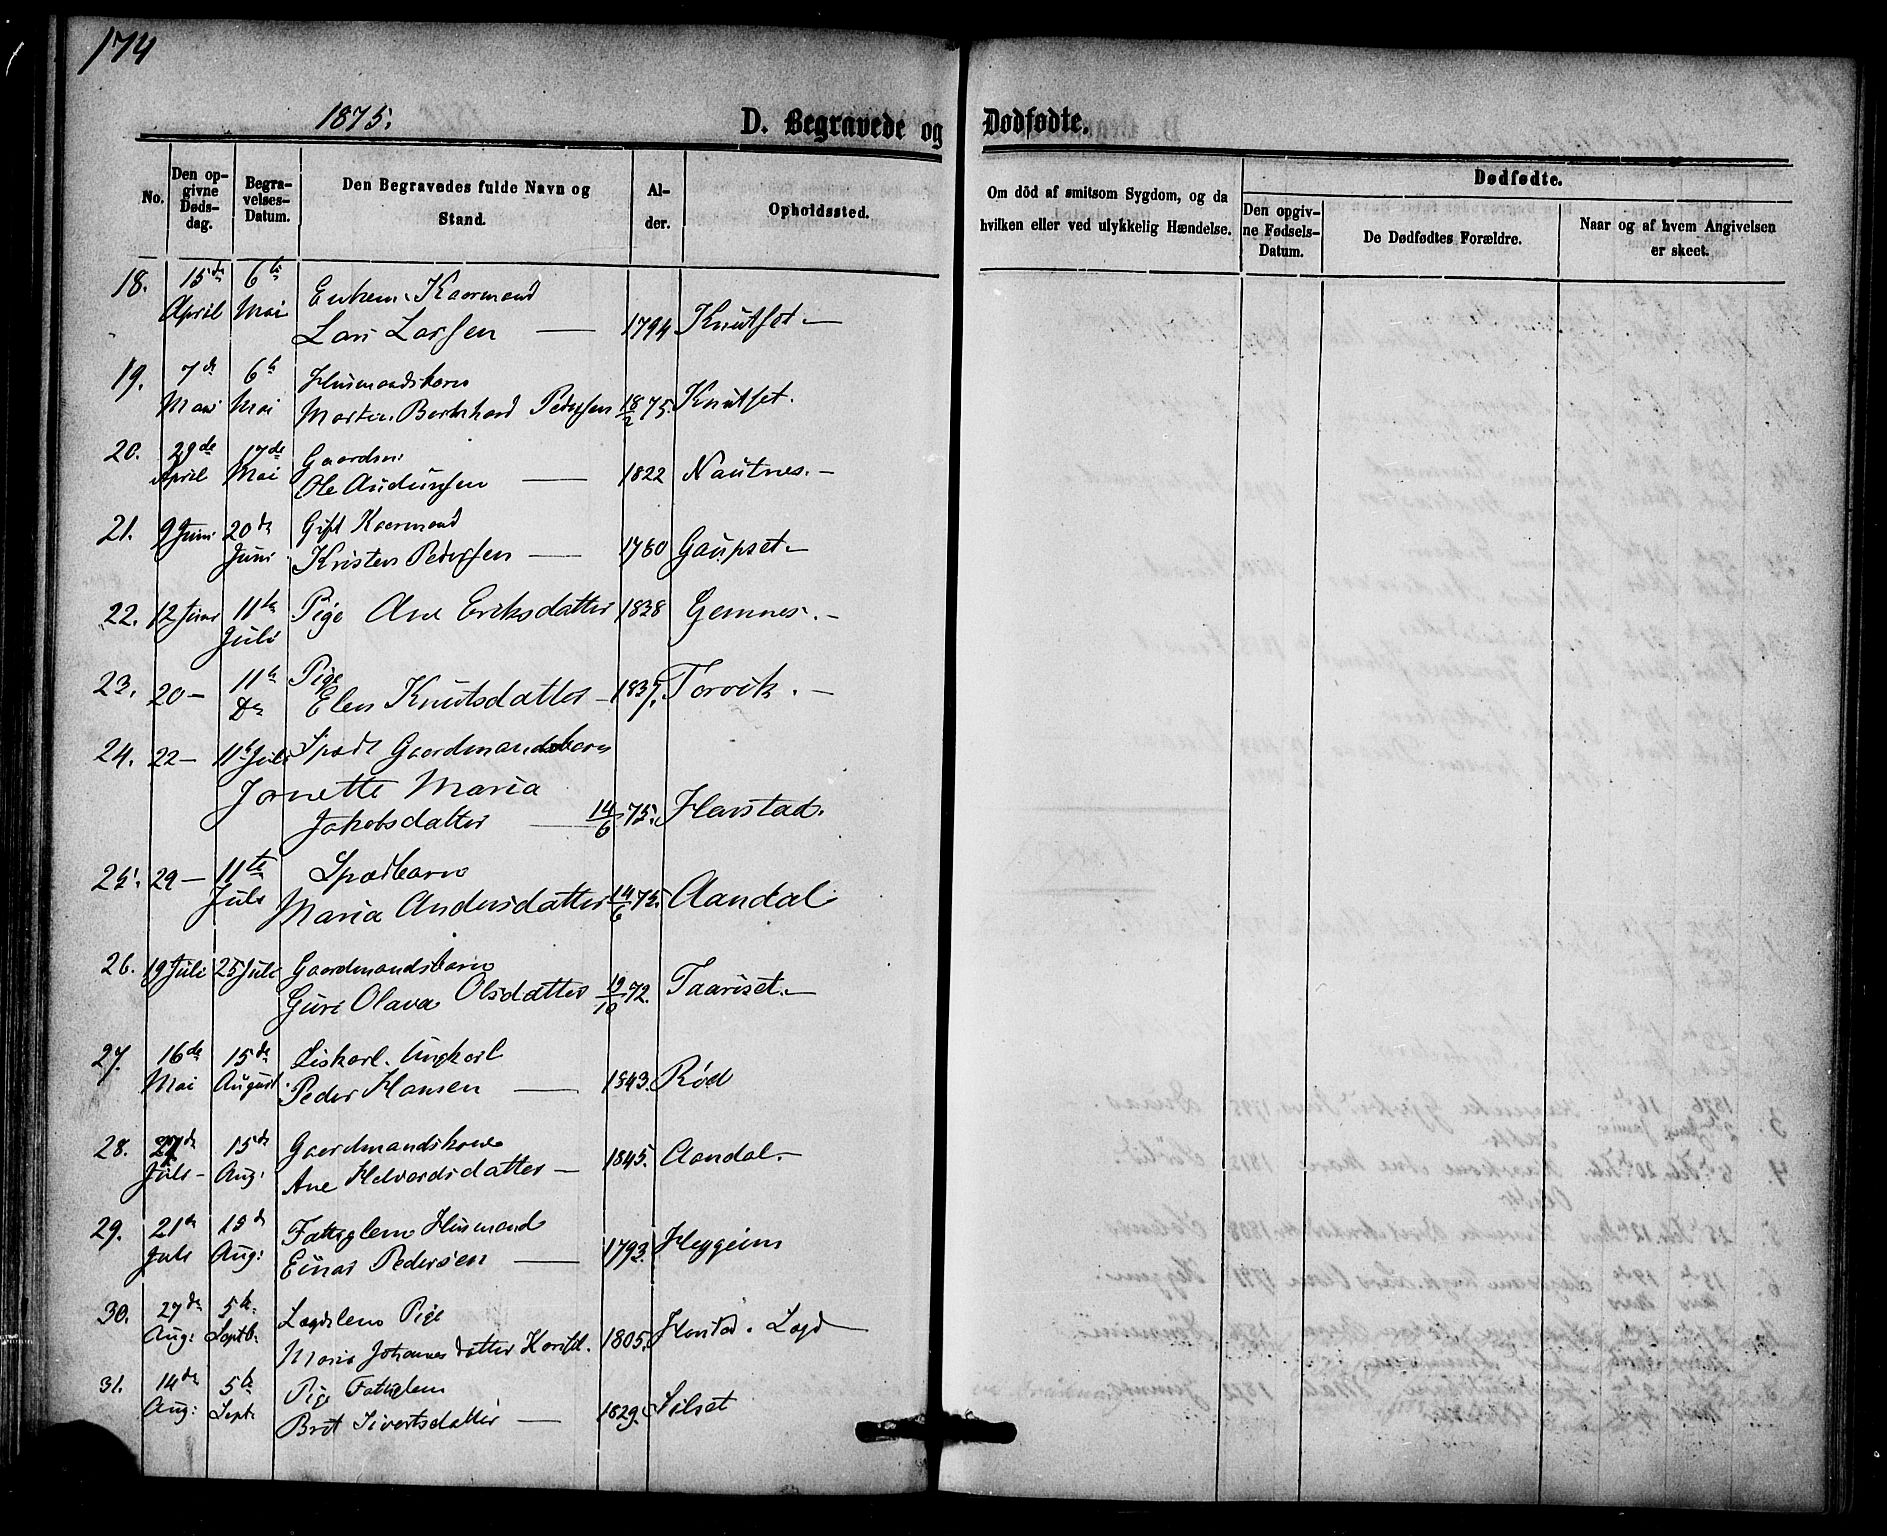 174
1875.
D. Begravede og Dødfødte.
No.
Den op-
givne
Døds-
dag.
Begra-
velses-
Datum.
Den Begravedes fulde Navn og
Stand.
Al-
der.
Opholdssted.
Om död af smitsom Sygdom, og da
hvilken eller ved ulykkelig Hændelse.
Dødfødte.
Den opgiv-
ne Fødsels-
Datum.
De Dødfødtes Forældre.
Naar og af hvem Angivelsen
er skeet.
18. 15de April 6te Mai Enkem. Kaarmand
Lars Larsen — 1794 Knutset —
19. 7de Mai 6te Mai Husmandsbarn
Morten Bernhard Pedersen 18/2 75. Knutset.
20. 29de April 17de Mai Gaardm.
Ole Audunsen — 1822 Nautnes. —
21. 9 Juni 20de Juni Gift Kaarmand
Kristen Pedersen — Gaupset —
22. 12 Juni 11te Juli Pige Ane Eriksdatter 1838 Gemnes. —
23. 20 — 11te Do Pige
Elen Knutsdatter — 1837. Torvik. —
24. 22 — 11te Juli Spædt Gaardmandsbarn
Jornette Maria
Jakobsdatter — 14/6 75. Harstad.
25. 29 — 11te Juli Spædbarn
Maria Andersdatter 14/6 75. Aandal
26. 19 Juli 25 Juli Gaardmandsbarn
Guri Olava Olsdatter 19/10 72. Taariset. —
27. 16de Mai 15de August Ungkarl
Peder Hansen — 1843. Rød
28. 27de Juli — 15de Aug: Gaardmandskone
Ane Halvardsdatter — 1845. Aandal. —
29. 21de Juli 15de Aug: Fattiglem Husmand
Einar Pedersen — 1793. Heggeim
30. 27de Aug: 5te Septb. Lægdslem Pige
Marie Johannesdatter 1805. Lægd —
31. 14de Aug: 5te Sept: Pige Fattiglem
Brit Sivertsdatter — 1829. Silset